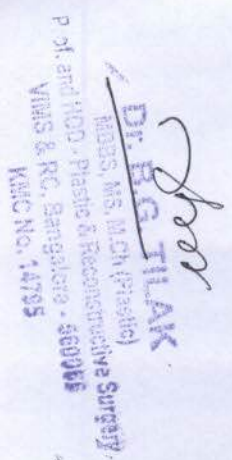 Dr. B.G. TILAK
MBBS, MS, M.Ch (Plastic)
Prof. and HOD - Plastic & Reconstructive Surgery
VIMS & RC, Bangalore - 560066
KMC No. 14795